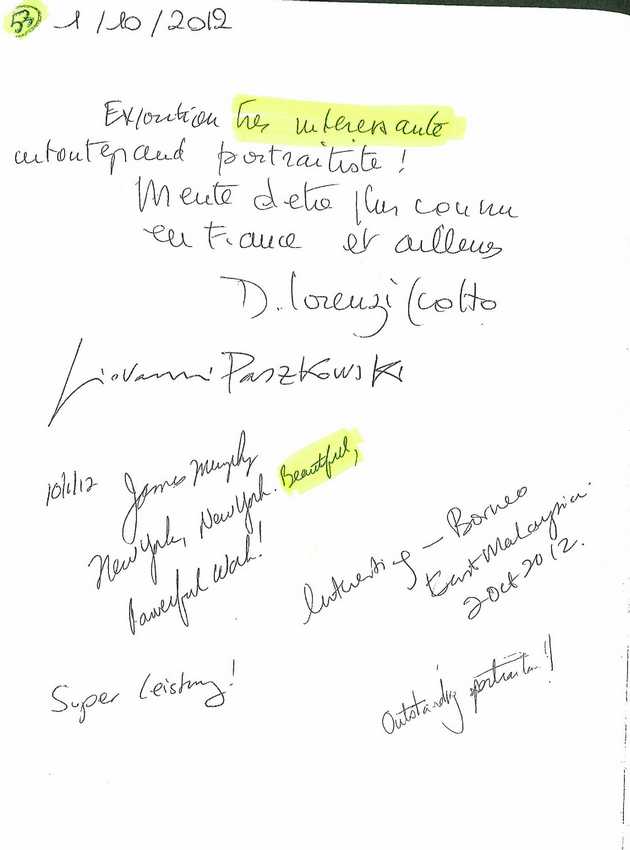 53 1/10/2012
Exposition très interessante
portraitiste !
Merite d'etre plus connu
en France et ailleurs
D. Lorenzi
Giovanni Paszkowski
10/1/12 James Murphy
New York, New York. Beautiful,
Powerful work!
Interesting – Borneo
East Malaysia.
2 Oct 2012.
Super Leistung!
Outstanding !!